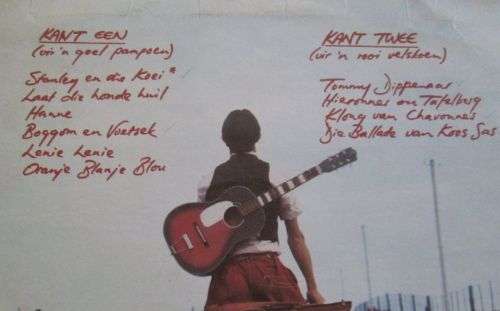 KANT EEN
(vir 'n geel pampoen)
Stanley en die Koei *
Laat die honde huil
Hanne
Boggom en Voetsek
Lenie Lenie
Oranje Blanje Blou
KANT TWEE
(vir 'n rooi velskoen)
Tommy Dippenaar
Hieronnes om Tafelberg
Klong van Chavonnes
Die Ballade van Koos Sas